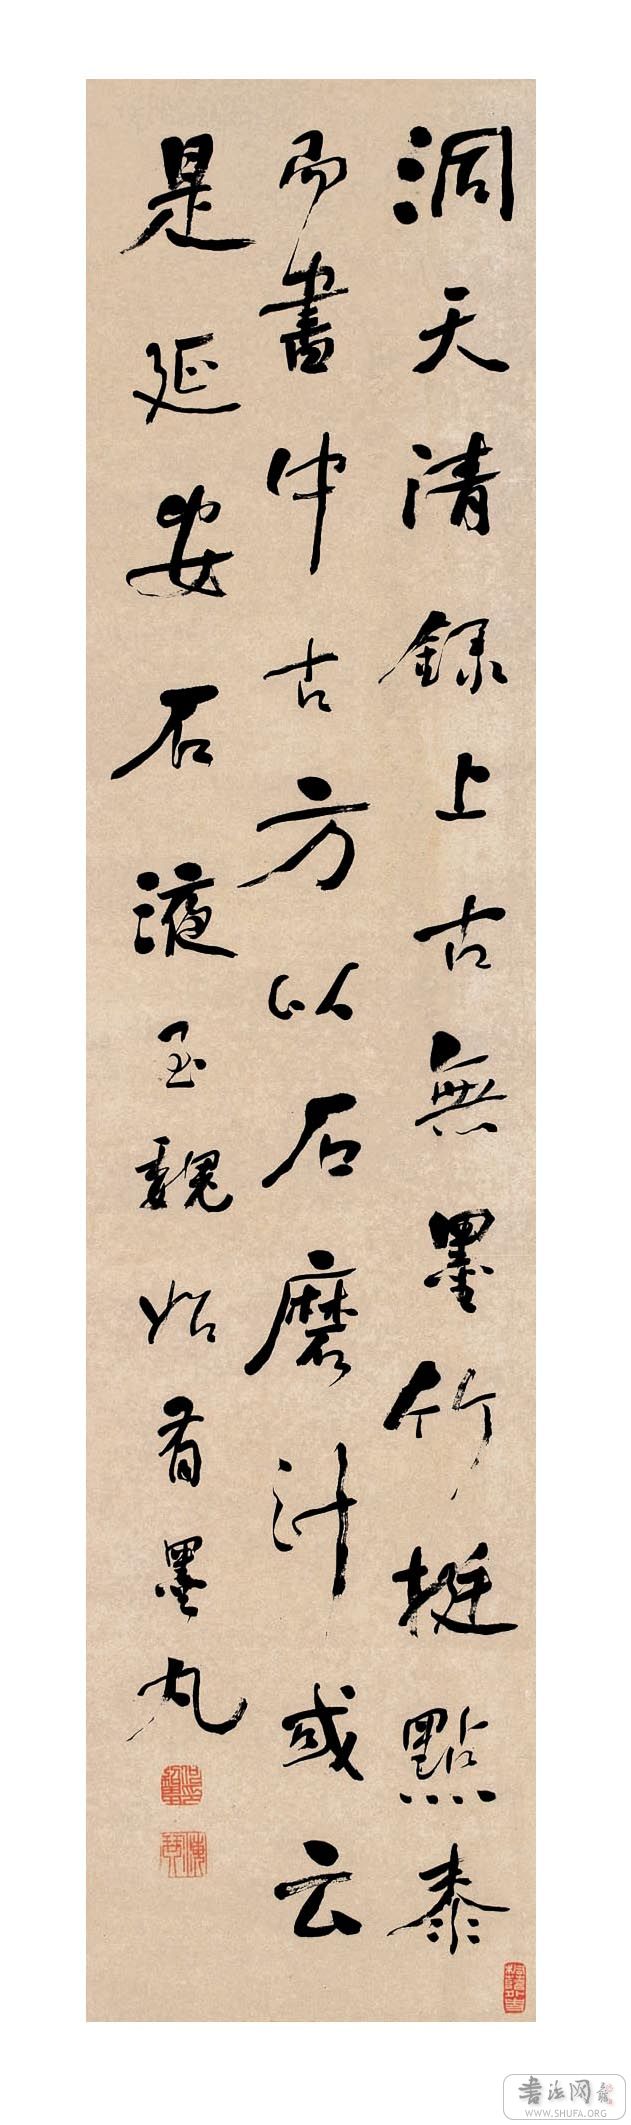 洞天清錄上古無墨竹挺點桼
而書中古方以石磨汁或云
是延安石液至魏始有墨丸
书法网
WWW.SHUFA.ORG